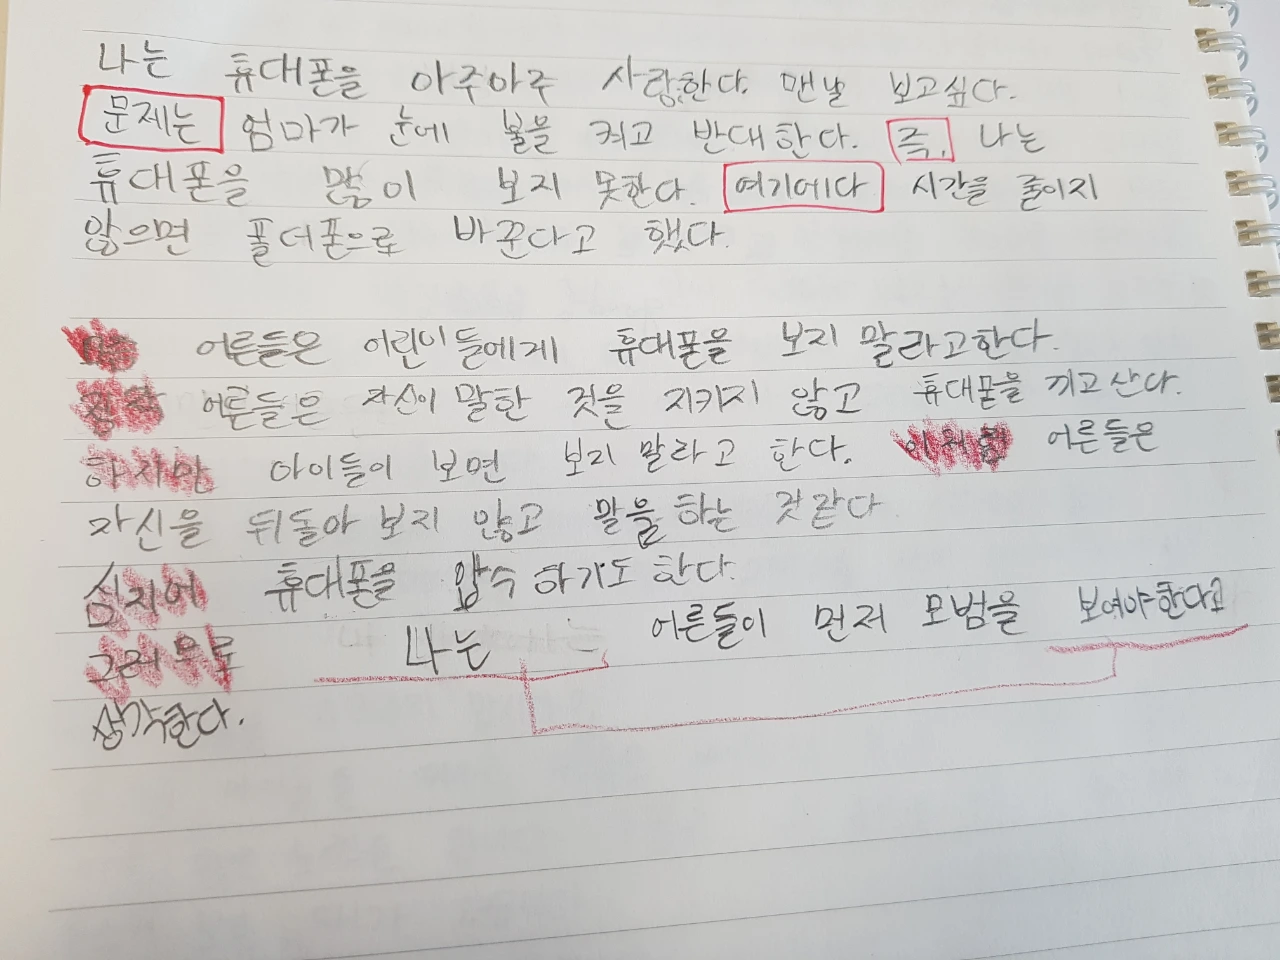 나는 휴대폰을 아주아주 사랑한다. 맨날 보고싶다.
문제는 엄마가 눈에 불을 켜고 반대한다. 즉, 나는
휴대폰을 많이 보지 못한다. 여기에다 시간을 줄이지
않으면 폴더폰으로 바꾼다고 했다.
어른들은 어린이들에게 휴대폰을 보지 말라고한다.
어른들은 자신이 말한 것을 지키지 않고 휴대폰을 끼고 산다.
하지만 아이들이 보면 보지 말라고 한다. 이처럼 어른들은
자신을 뒤돌아 보지 않고 말을 하는 것 같다
심지어 휴대폰을 압수 하기도 한다.
그러므로 나는 어른들이 먼저 모범을 보여야한다고
생각한다.